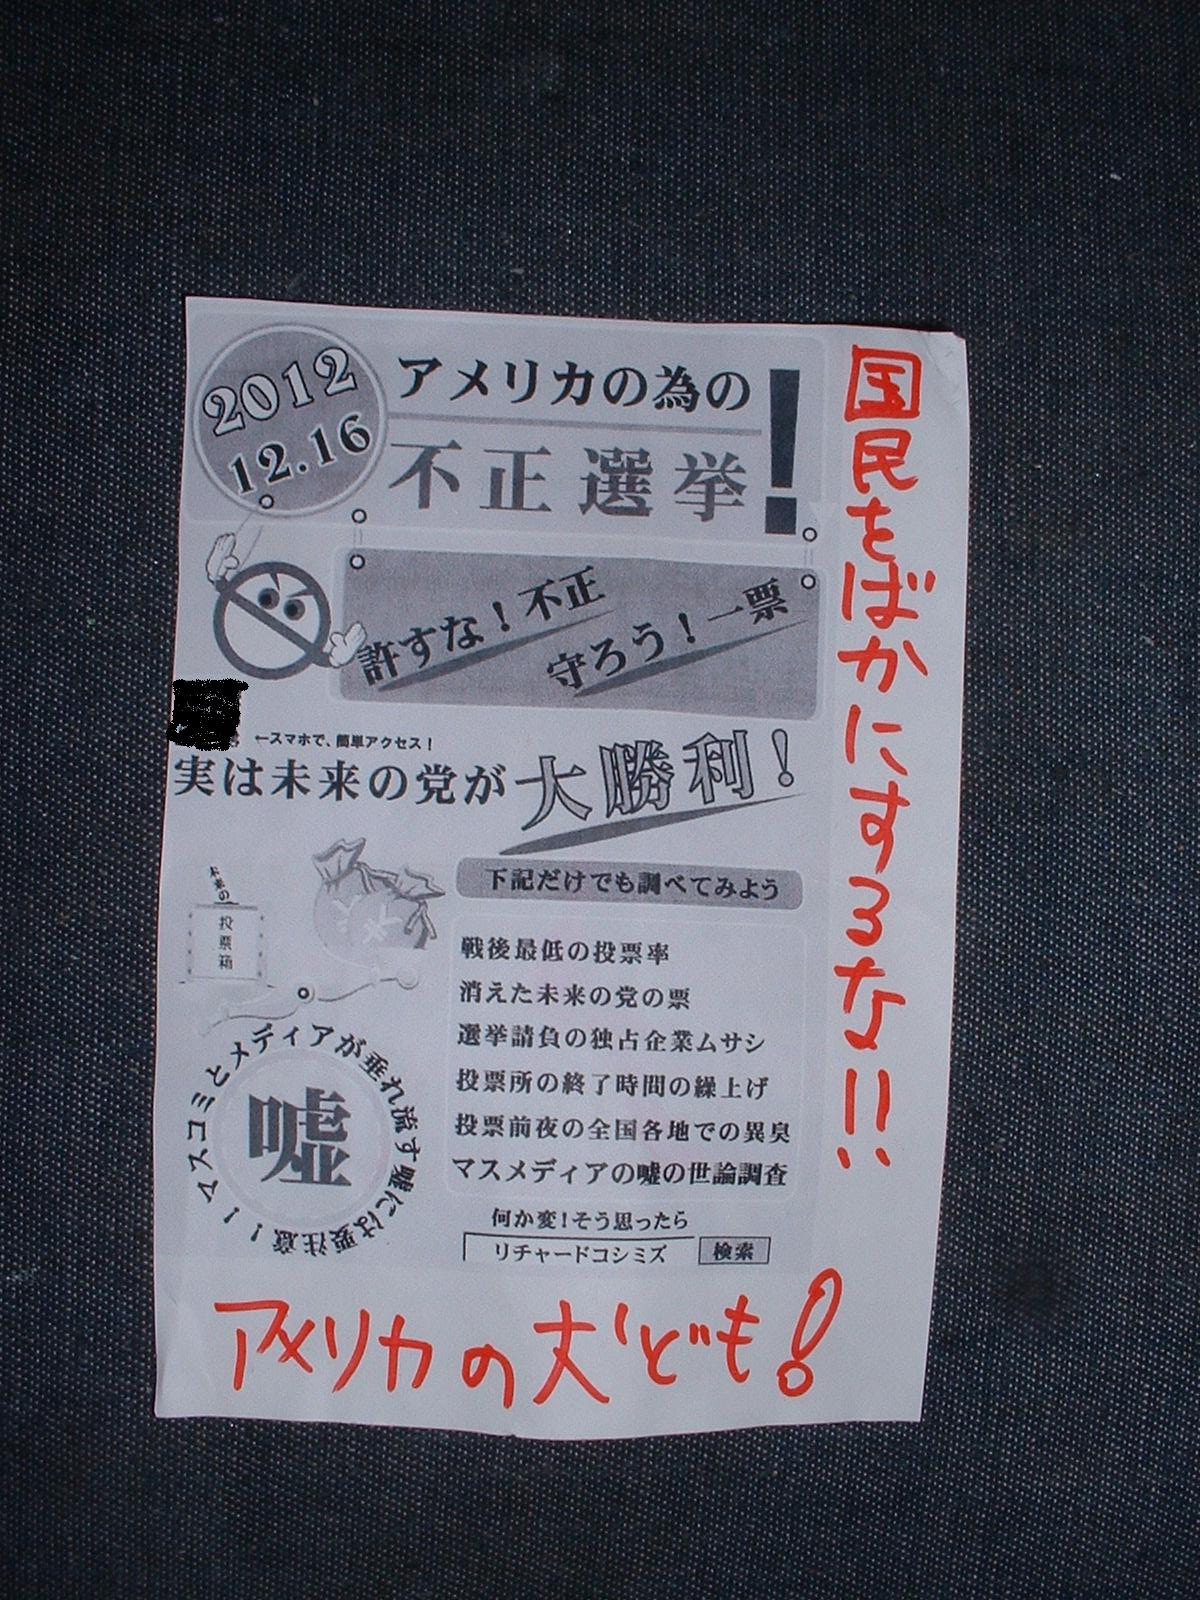 2012
12.16
アメリカの為の
不正選挙!
許すな!不正
守ろう!一票
←スマホで、簡単アクセス!
実は未来の党が大勝利!
下記だけでも調べてみよう
戦後最低の投票率
消えた未来の党の票
選挙請負の独占企業ムサシ
投票所の終了時間の繰上げ
投票前夜の全国各地での異臭
マスメディアの嘘の世論調査
未来の
投票箱
マスコミとメディアが垂れ流す嘘には要注意!!
嘘
何か変!そう思ったら
リチャードコシミズ 検索
国民をばかにするな!!
アメリカの犬ども!